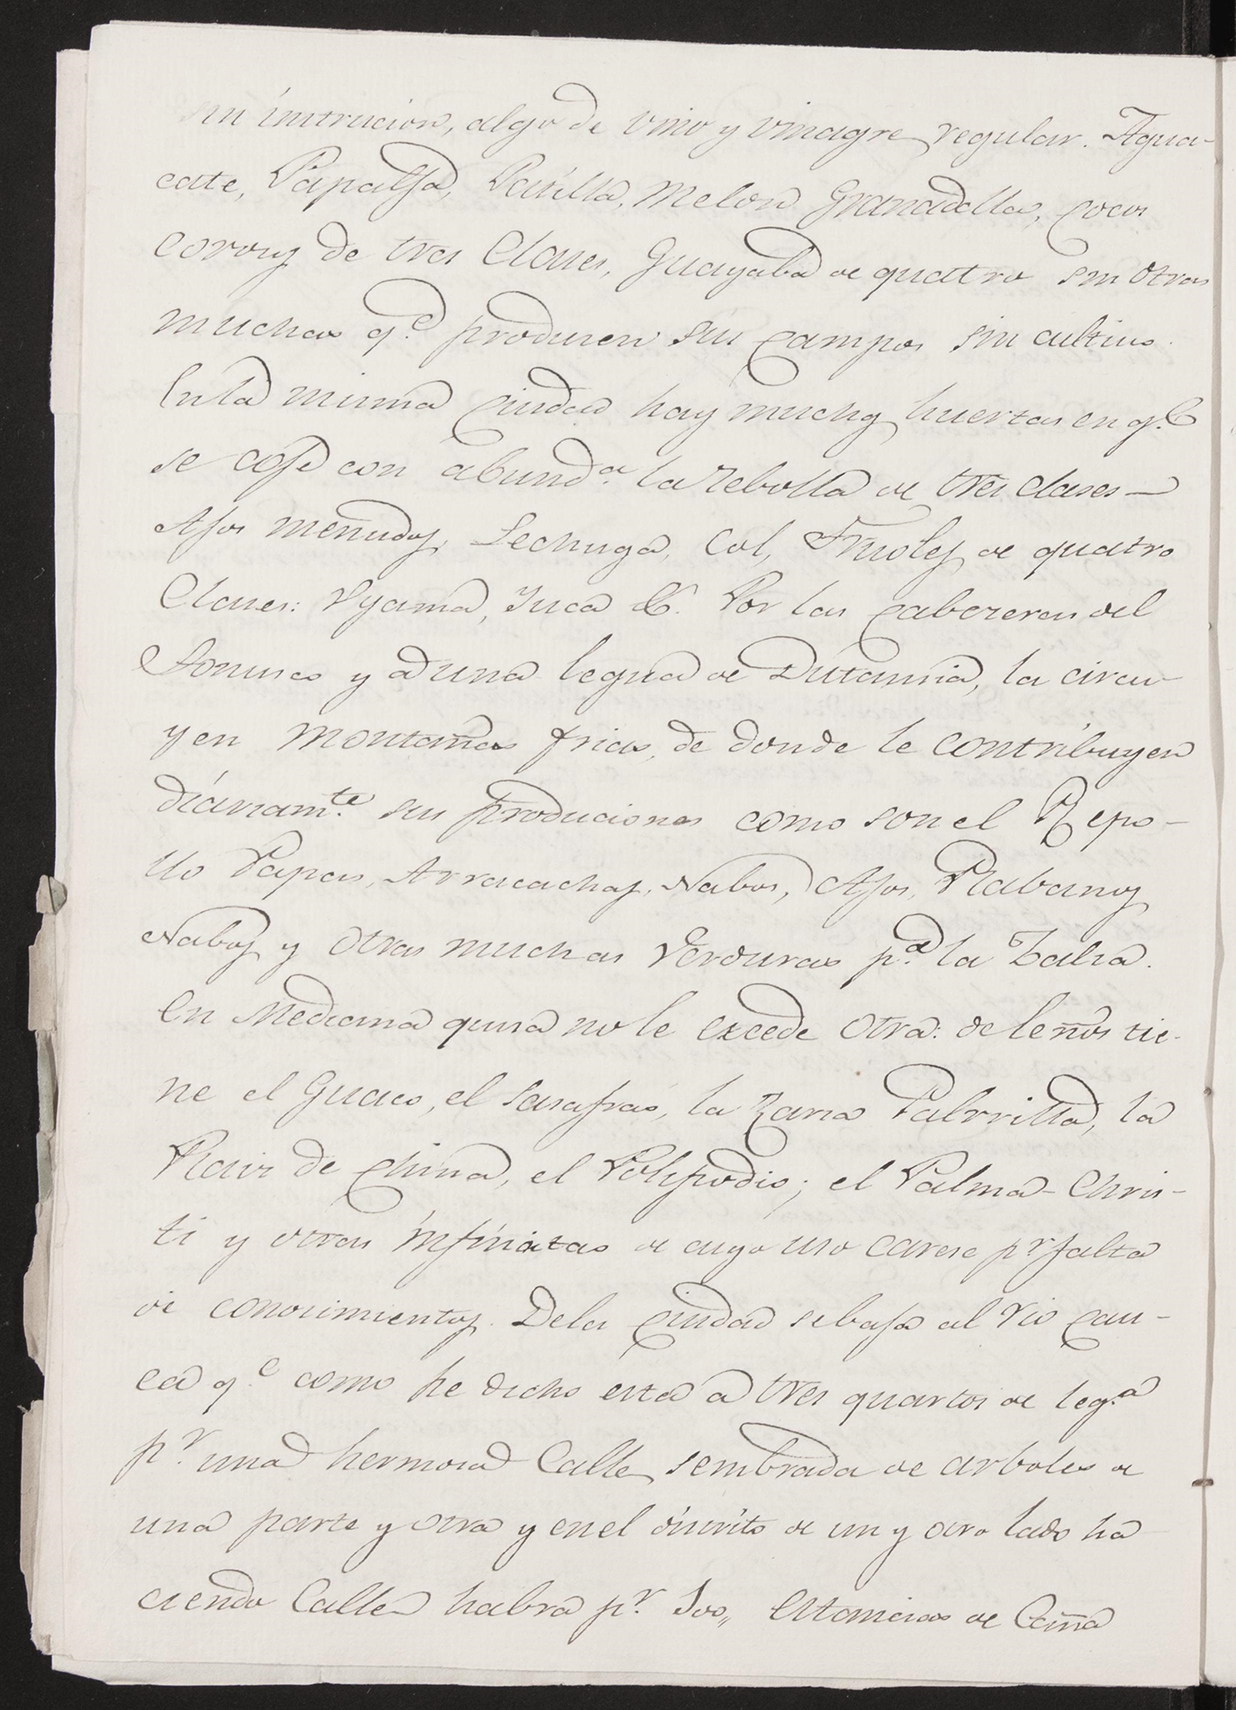 sin instrucion, algo de vino y vinagre regular. Agua-
cate, Papalla, Patilla, Melon Granadilla, cocos
corozs de tres Clases, Guayaba de quatro sin otras
muchas q.e producen sus campos sin cultivo.
En la misma Ciudad hay muchs huertas en q.e
se coje con abund.a la zebolla de tres clases —
Ajos menudos, Lechuga, Col, Frisoles de quatro
Clases: Vyama, Yuca &. Por las cabezeras del
y a una legua de Distansia, la circu-
yen montañas frias, de donde le contribuyen
diariam.te sus produciones como son el Repo-
llo Papas, Arracachas, Nabos, Ajos, Rabanos
Nabos y otras muchas verduras p.a la
En Medicina quina no le excede otra: de leños tie-
ne el Guaco, el sasafras, la Zarsa Palrrilla, la
Raiz de China, el Polipodio; el Palma-Chris-
ti y otras infinitas de cuyo uso carese p.r falta
de conocimientos. De la Ciudad se baja al rio Cau-
ca q.e como he dicho esta a tres quartos de leg.a
p.r una hermosa Calle, sembrada de arboles de
una parte y otra y en el distrito de un y otro lado ha
ciendo Calle habra p.r Estansias de Caña